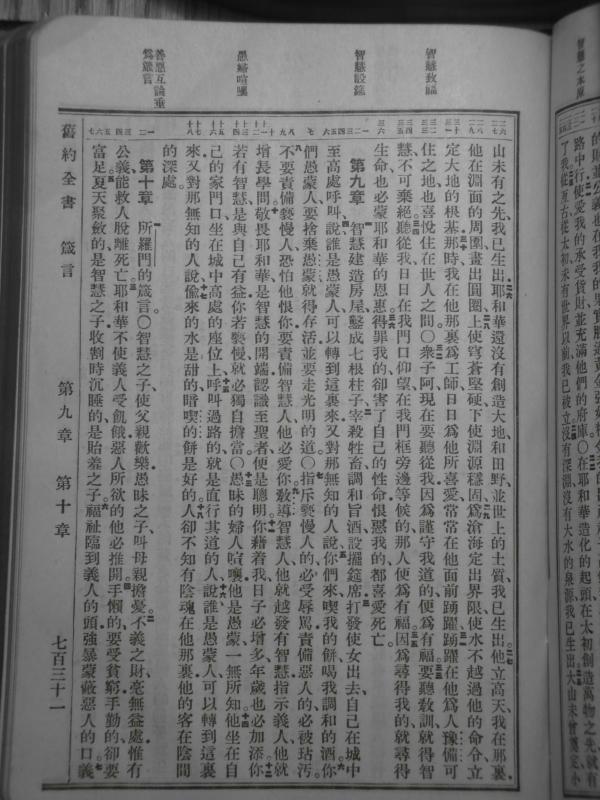 智慧之本原
路中行使愛我的承受貨財並充滿他們的府庫〇在耶和華造化的起頭在太初創造萬物之先就有
了我從亙古從太初未有世界以前我已被立沒有深淵沒有大水的泉源我已生出大山未曾奠定小
智慧致福
智慧設筵
愚婦喧嚷
善惡互論垂
爲箴言
山未有之先我已生出耶和華還沒有創造大地和田野並世上的土質我已生出他立高天我在那裏
他在淵面的周圍畫出圓圈上使穹蒼堅硬下使淵源穩固爲滄海定出界限使水不越過他的命令立
定大地的根基那時我在他那裏爲工師日日爲他所喜愛常常在他面前踴躍踴躍在他爲人豫備可
住之地也喜悅住在世人之間〇衆子阿現在要聽從我因爲謹守我道的便爲有福要聽敎訓就得智
慧不可棄絕聽從我日日在我門口仰望在我門框旁邊等候的那人便爲有福因爲尋得我的就尋得
生命也必蒙耶和華的恩惠得罪我的却害了自己的性命恨惡我的都喜愛死亡
第九章 智慧建造房屋鑿成七根柱子宰殺牲畜調和旨酒設擺筵席打發使女出去自己在城中
至高處呼叫說誰是愚蒙人可以轉到這裏來又對那無知的人說你們來喫我的餅喝我調和的酒你
們愚蒙人要捨棄愚蒙就得存活並要走光明的道〇指斥褻慢人的必受辱駡責備惡人的必被玷汚
不要責備褻慢人恐怕他恨你要責備智慧人他必愛你敎導智慧人他就越發有智慧指示義人他就
增長學問敬畏耶和華是智慧的開端認識至聖者便是聰明你藉着我日子必增多年歲也必加添你
若有智慧是與自己有益你若褻慢就必獨自擔當〇愚昧的婦人喧嚷他是愚蒙一無所知他坐在自
己的家門口坐在城中高處的座位上呼叫過路的就是直行其道的人說誰是愚蒙人可以轉到這裏
來又對那無知的人說偷來的水是甜的暗喫的餅是好的人却不知有陰魂在他那裏他的客在陰間
的深處
第十章 所羅門的箴言〇智慧之子使父親歡樂愚昧之子叫母親擔憂不義之財毫無益處惟有
公義能救人脫離死亡耶和華不使義人受飢餓惡人所欲的他必推開手懶的要受貧窮手勤的卻要
富足夏天聚斂的是智慧之子收割時沉睡的是貽羞之子福祉臨到義人的頭強暴蒙蔽惡人的口義
舊約全書 箴言 第九章 第十章 七百三十一